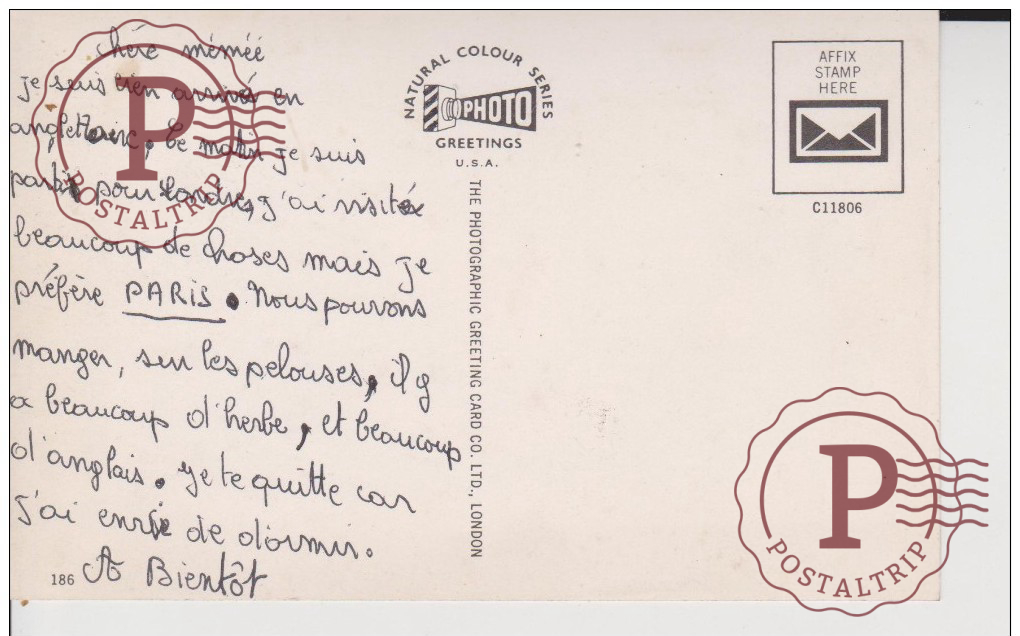 chère mémée
je suis bien arrivée en
angleterre, ce matin je suis
partie pour Londres, j'ai visitée
beaucoup de choses mais je
préfère PARIS. Nous pouvons
manger, sur les pelouses, il y
a beaucoup d'herbe, et beaucoup
d'anglais. je te quitte car
j'ai envie de dormir.
A Bientôt
186
NATURAL COLOUR SERIES
PHOTO
GREETINGS
U.S.A.
THE PHOTOGRAPHIC GREETING CARD CO. LTD., LONDON
AFFIX
STAMP
HERE
C11806
P
POSTALTRIP
P
POSTALTRIP